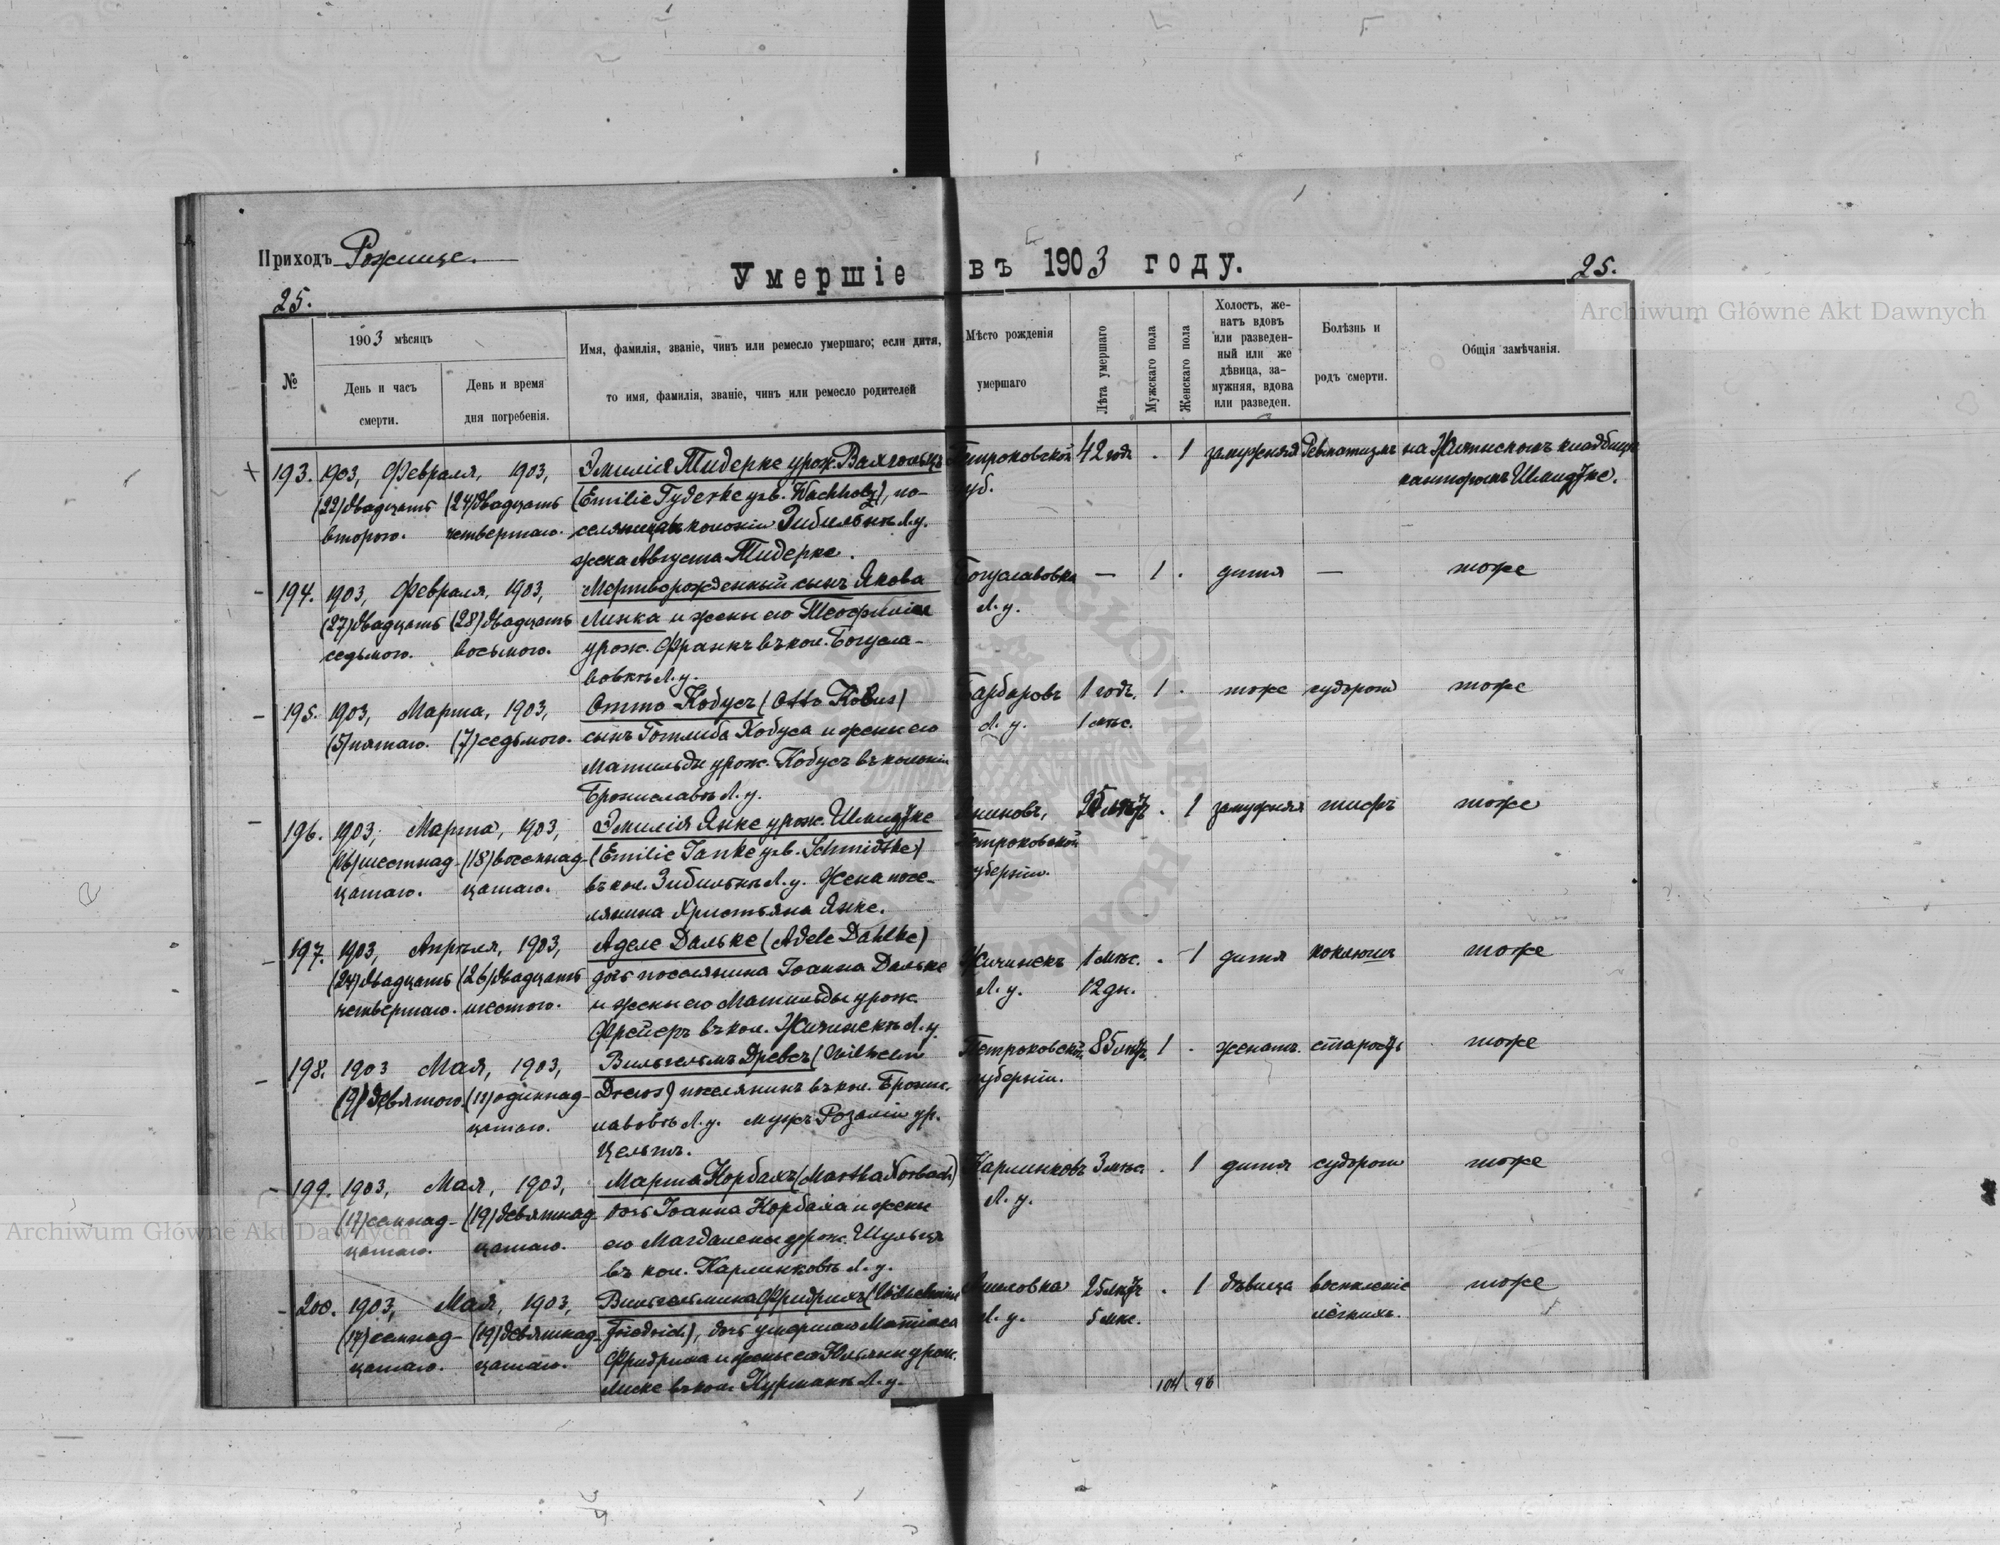 Приходъ Рожище.
Умершіе въ 1903 году.
25.
25.
Archiwum Główne Akt Dawnych
№
1903 мѣсяцъ
День и часъ
смерти.
День и время
дня погребенія.
Имя, фамилія, званіе, чинъ или ремесло умершаго; если дитя,
то имя, фамилія, званіе, чинъ или ремесло родителей
Мѣсто рожденія
умершаго
Лѣта умершаго
Мужскаго пола
Женскаго пола
Холостъ, же-
натъ вдовъ
или разведен-
ный или же
дѣвица, за-
мужняя, вдова
или разведен.
Болѣзнь и
родъ смерти.
Общія замѣчанія.
193. 1903, Февраля, 1903, Эмилія Тидерке урож. 42 годъ . 1 замужняя Ревматизмъ на Жичинскомъ кладбищѣ
(22) двадцать (24) двадцать (Emilie geb. Buchholz), по- губ. канторомъ Шмидтке.
второго. четвертаго. колоніи Л. у.
жена Августа Тидерке.
194. 1903, Февраля, 1903, Мертворожденный сынъ Якова Богуславовка — 1 . дитя — тоже
(27) двадцать (28) двадцать Линка и жены его Теофиліи Л. у.
седьмого. восьмого. урож. Франкъ въ кол. Богусла-
вовкѣ Л. у.
195. 1903, Марта, 1903, Отто Кобусъ (Otto Kobus) Барбаровъ 1 годъ. 1 . тоже судороги тоже
(5) пятаго. (7) седьмого. сынъ Готлиба Кобуса и жены его Л. у. 1 мѣс.
Матильды урож. Кобусъ въ колоніи
Брониславкѣ Л. у.
196. 1903, Марта, 1903, Эмилія Янке урож. Шмидтке . 1 замужняя тифъ тоже
(16) шестнад- (18) восемнад- (Emilie Janke geb. Schmidtke) Петроковской
цатаго. цатаго. въ кол. Л. у. Жена посе- губерніи.
лянина Христьяна Янке.
197. 1903, Апрѣля, 1903, Аделе Дальке (Adele Dahlke) Жичинекъ 1 мѣс. . 1 дитя коклюшъ тоже
(24) двадцать (26) двадцать дочь поселянина Іоанна Дальке Л. у. 12 дн.
четвертаго. шестого. и жены его Матильды урож.
Фрейеръ въ кол. Жичинекъ Л. у.
198. 1903 Мая, 1903, Вильгельмъ Древсъ (Wilhelm Петроковской 85 лѣтъ 1 . женатъ. старость тоже
(9) девятого (11) одиннад- Drews) поселянинъ въ кол. Брони- губерніи.
цатаго. славовкѣ Л. у. мужъ Розаліи ур.
199. 1903, Мая, 1903, Марта Корбахъ (Martha Korbach) Карлинковъ 3 мѣс. . 1 дитя судороги тоже
(17) семнад- (19) девятнад- дочь Іоанна Корбаха и жены Л. у.
цатаго. цатаго. его Магдалены урож. Шульцъ
въ кол. Карлинковѣ Л. у.
200. 1903, Мая, 1903, Вильгельмина Фридрихъ (Wilhelmine 25 лѣтъ . 1 дѣвица воспаленіе тоже
(17) семнад- (19) девятнад- Friedrich), дочь умершаго Матіаса Л. у. 5 мѣс. лёгкихъ.
цатаго. цатаго. Фридриха и жены его Юльяны урож.
въ кол. Л. у.
104 96
Archiwum Główne Akt Dawnych